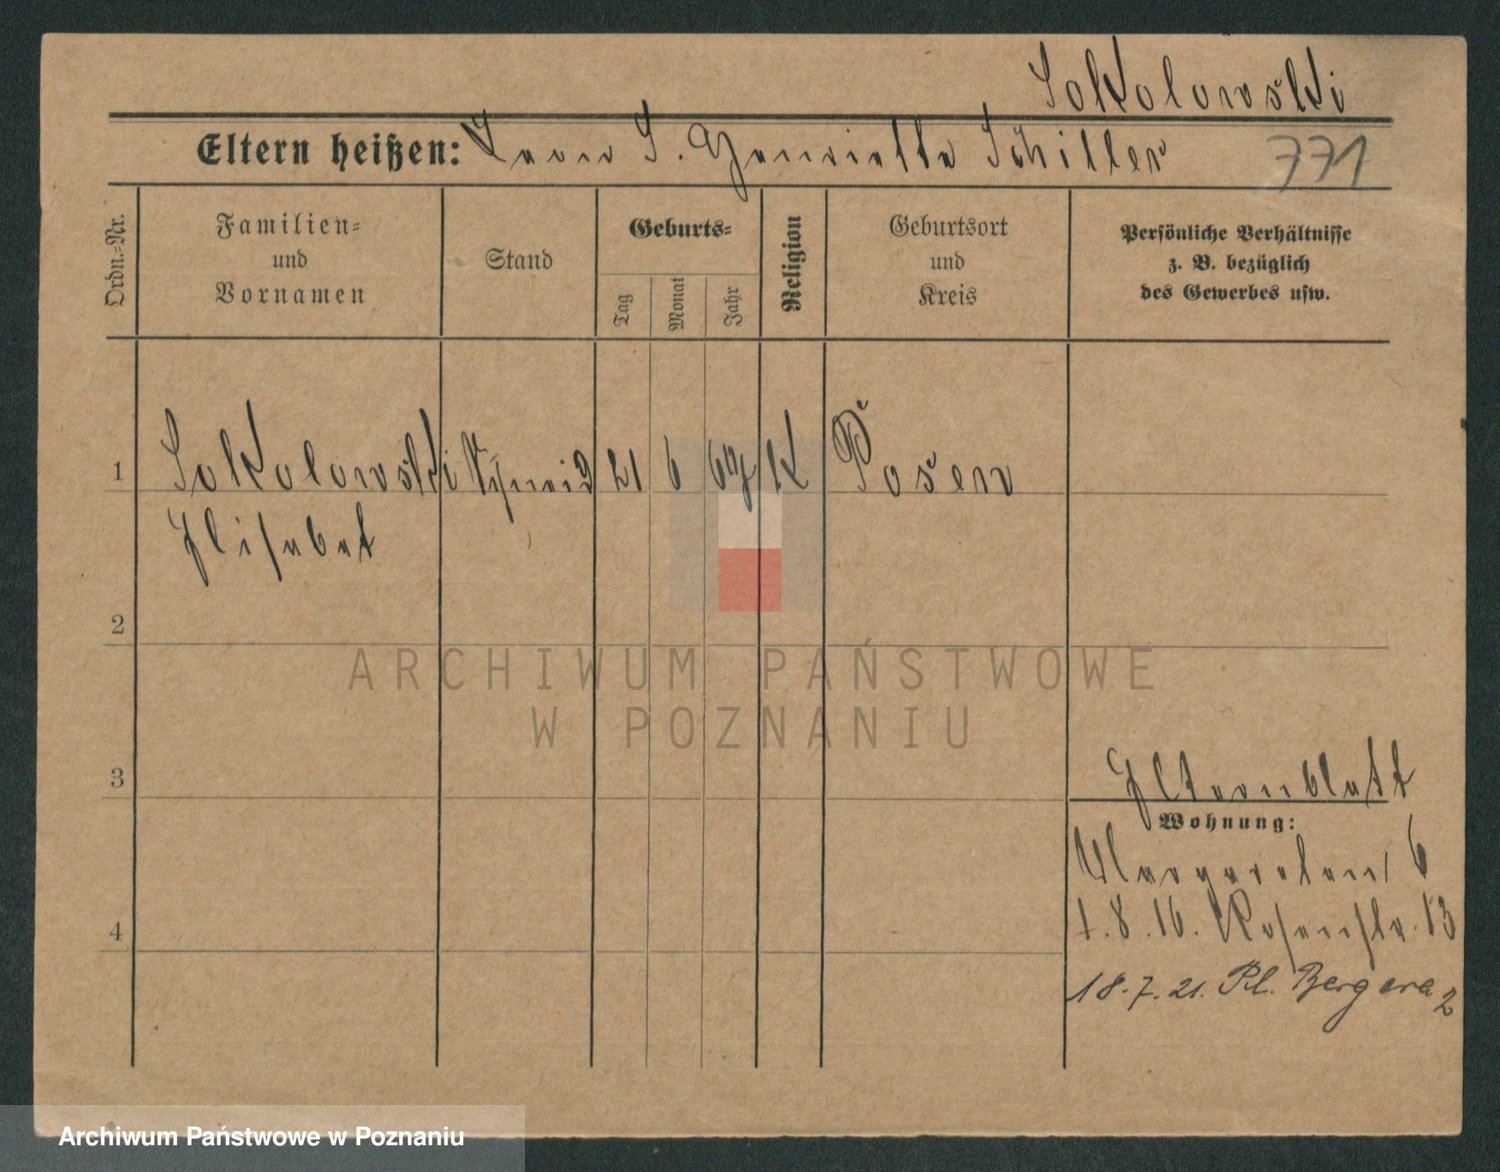 Sokolowski
Eltern heißen: Leon S. Henriette Schiller
771
Ordn.-Nr.
Familien- und Vornamen
Stand
Geburts-
Tag
Monat
Jahr
Religion
Geburtsort und Kreis
Persönliche Verhältnisse
z. B. bezüglich
des Gewerbes usw.
1
Sokolowski
21 6 67 K
Posen
Elisabet
2
ARCHIWUM PAŃSTWOWE
W POZNANIU
3
Elternblatt
Wohnung:
Margareten 6
4
1.8.16. Rosenstr. 13
18.7.21. Pl. Bergera 2
Archiwum Państwowe w Poznaniu